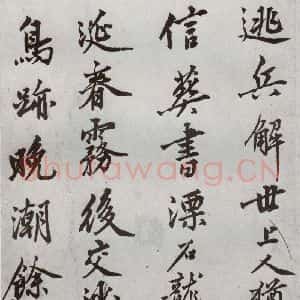 逃兵解世上人猶
信葬書漂石龍
涎春霧後交沙
鳥跡晚潮餘
Shufawang.CN